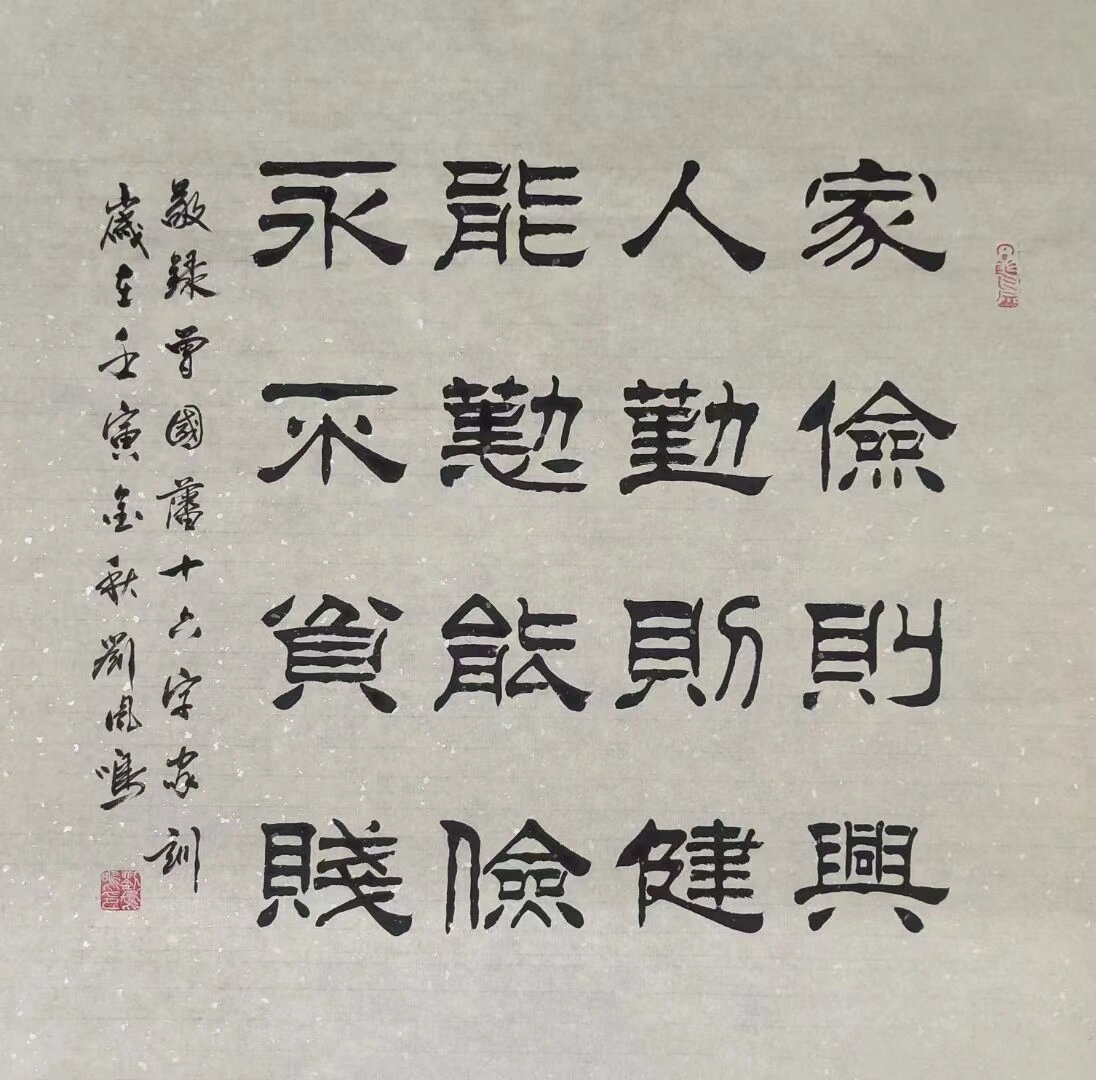 家儉則興
人勤則健
能懃能儉
永不貧賤
敬録曾國藩十六字家訓
歲在壬寅金秋劉鳳鳴